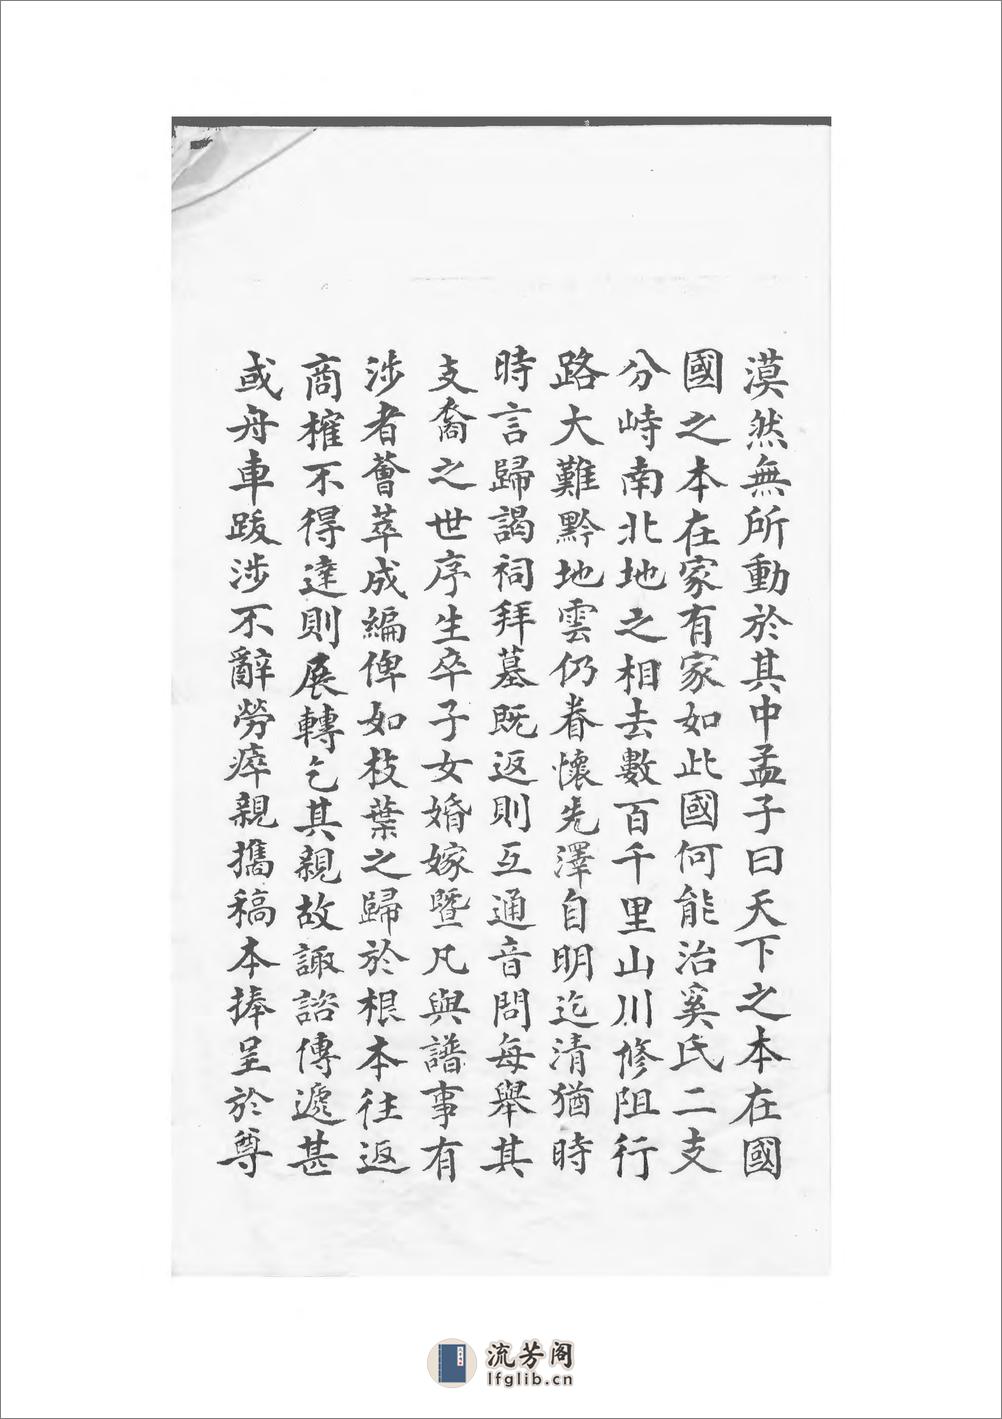 漠然無所動於其中孟子曰天下之本在國
國之本在家有家如此國何能治奚氏二支
分峙南北地之相去數百千里山川修阻行
路大難黔地雲仍眷懷先澤自明迄清猶時
時言歸謁祠拜墓既返則互通音問每舉其
支裔之世序生卒子女婚嫁暨凡與譜事有
涉者薈萃成編俾如枝葉之歸於根本往返
商榷不得達則展轉乞其親故諏諮傳遞甚
或舟車跋涉不辭勞瘁親攜稿本捧呈於尊
流芳阁
lfglib.cn